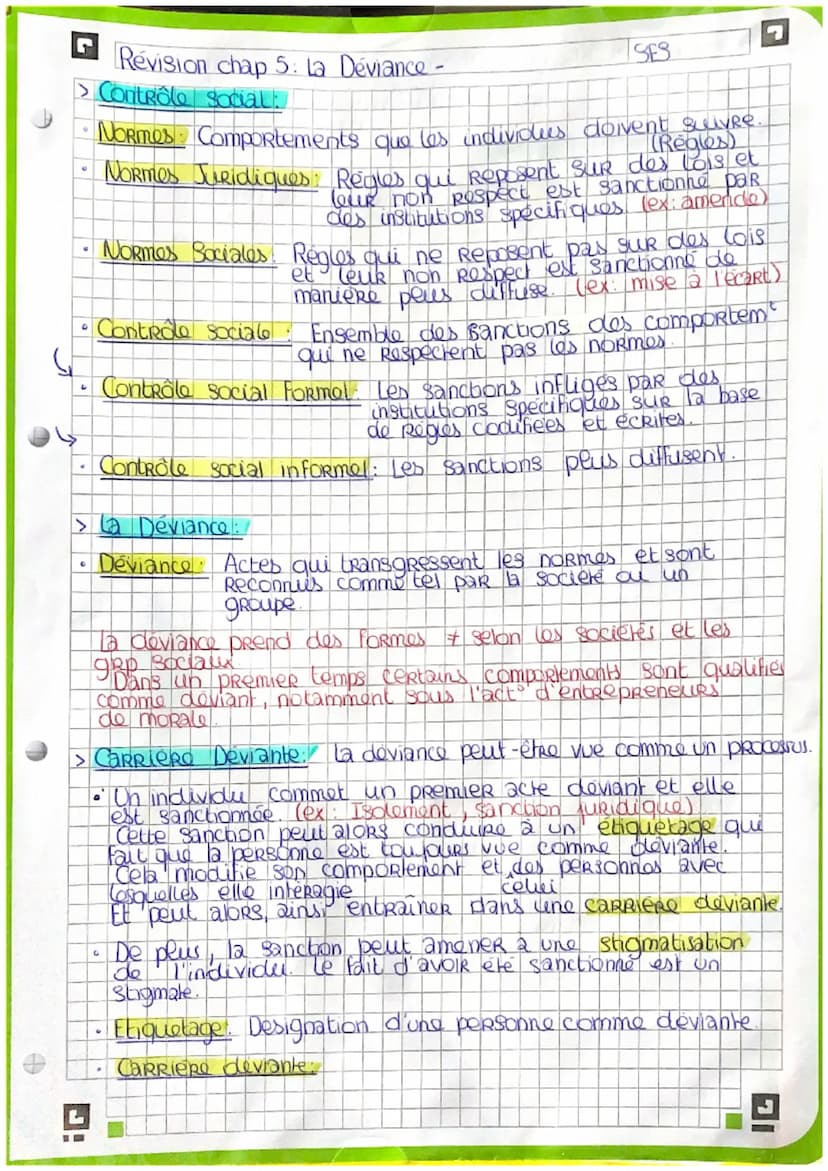 Révision chap 5: La Déviance -
SES
> Contrôle social:
• Normes: Comportements que les individus doivent suivre.
(Règles)
• Normes Juridiques: Règles qui reposent sur des lois et
leur non respect est sanctionné par
des institutions spécifiques (ex: amende)
• Normes Sociales: Règles qui ne reposent pas sur des lois
et leur non respect est sanctionné de
manière plus diffuse. (ex: mise à l'écart)
• Contrôle sociale: Ensemble des sanctions des comportemt
qui ne respectent pas les normes.
• Contrôle social formel: Les sanctions infligés par des
institutions spécifiques sur la base
de règles codifiées et écrites.
• Contrôle social informel: Les sanctions plus diffusent.
> La Déviance:
• Déviance: Actes qui transgressent les normes et sont
reconnus comme tel par la société ou un
groupe.
La déviance prend des formes ≠ selon les sociétés et les
grp sociaux.
Dans un premier temps certains comportements sont qualifiés
comme déviant, notamment sous l'act° d'entrepreneurs
de morale.
> Carrière Déviante: La déviance peut-être vue comme un processus.
• Un individu commet un premier acte déviant et elle
est sanctionnée. (ex: Isolement, sanction juridique)
Cette sanction peut alors conduire à un étiquetage qui
fait que la personne est toujours vue comme déviante.
Cela modifie son comportement et des personnes avec
celui
lesquelles elle intéragie
Et peut alors, ainsi entraîner dans une carrière déviante.
• De plus, la sanction peut amener à une stigmatisation
de l'individu. Le fait d'avoir été sanctionné est un
stigmate.
• Etiquetage: Designation d'une personne comme déviante.
• Carrière déviante: